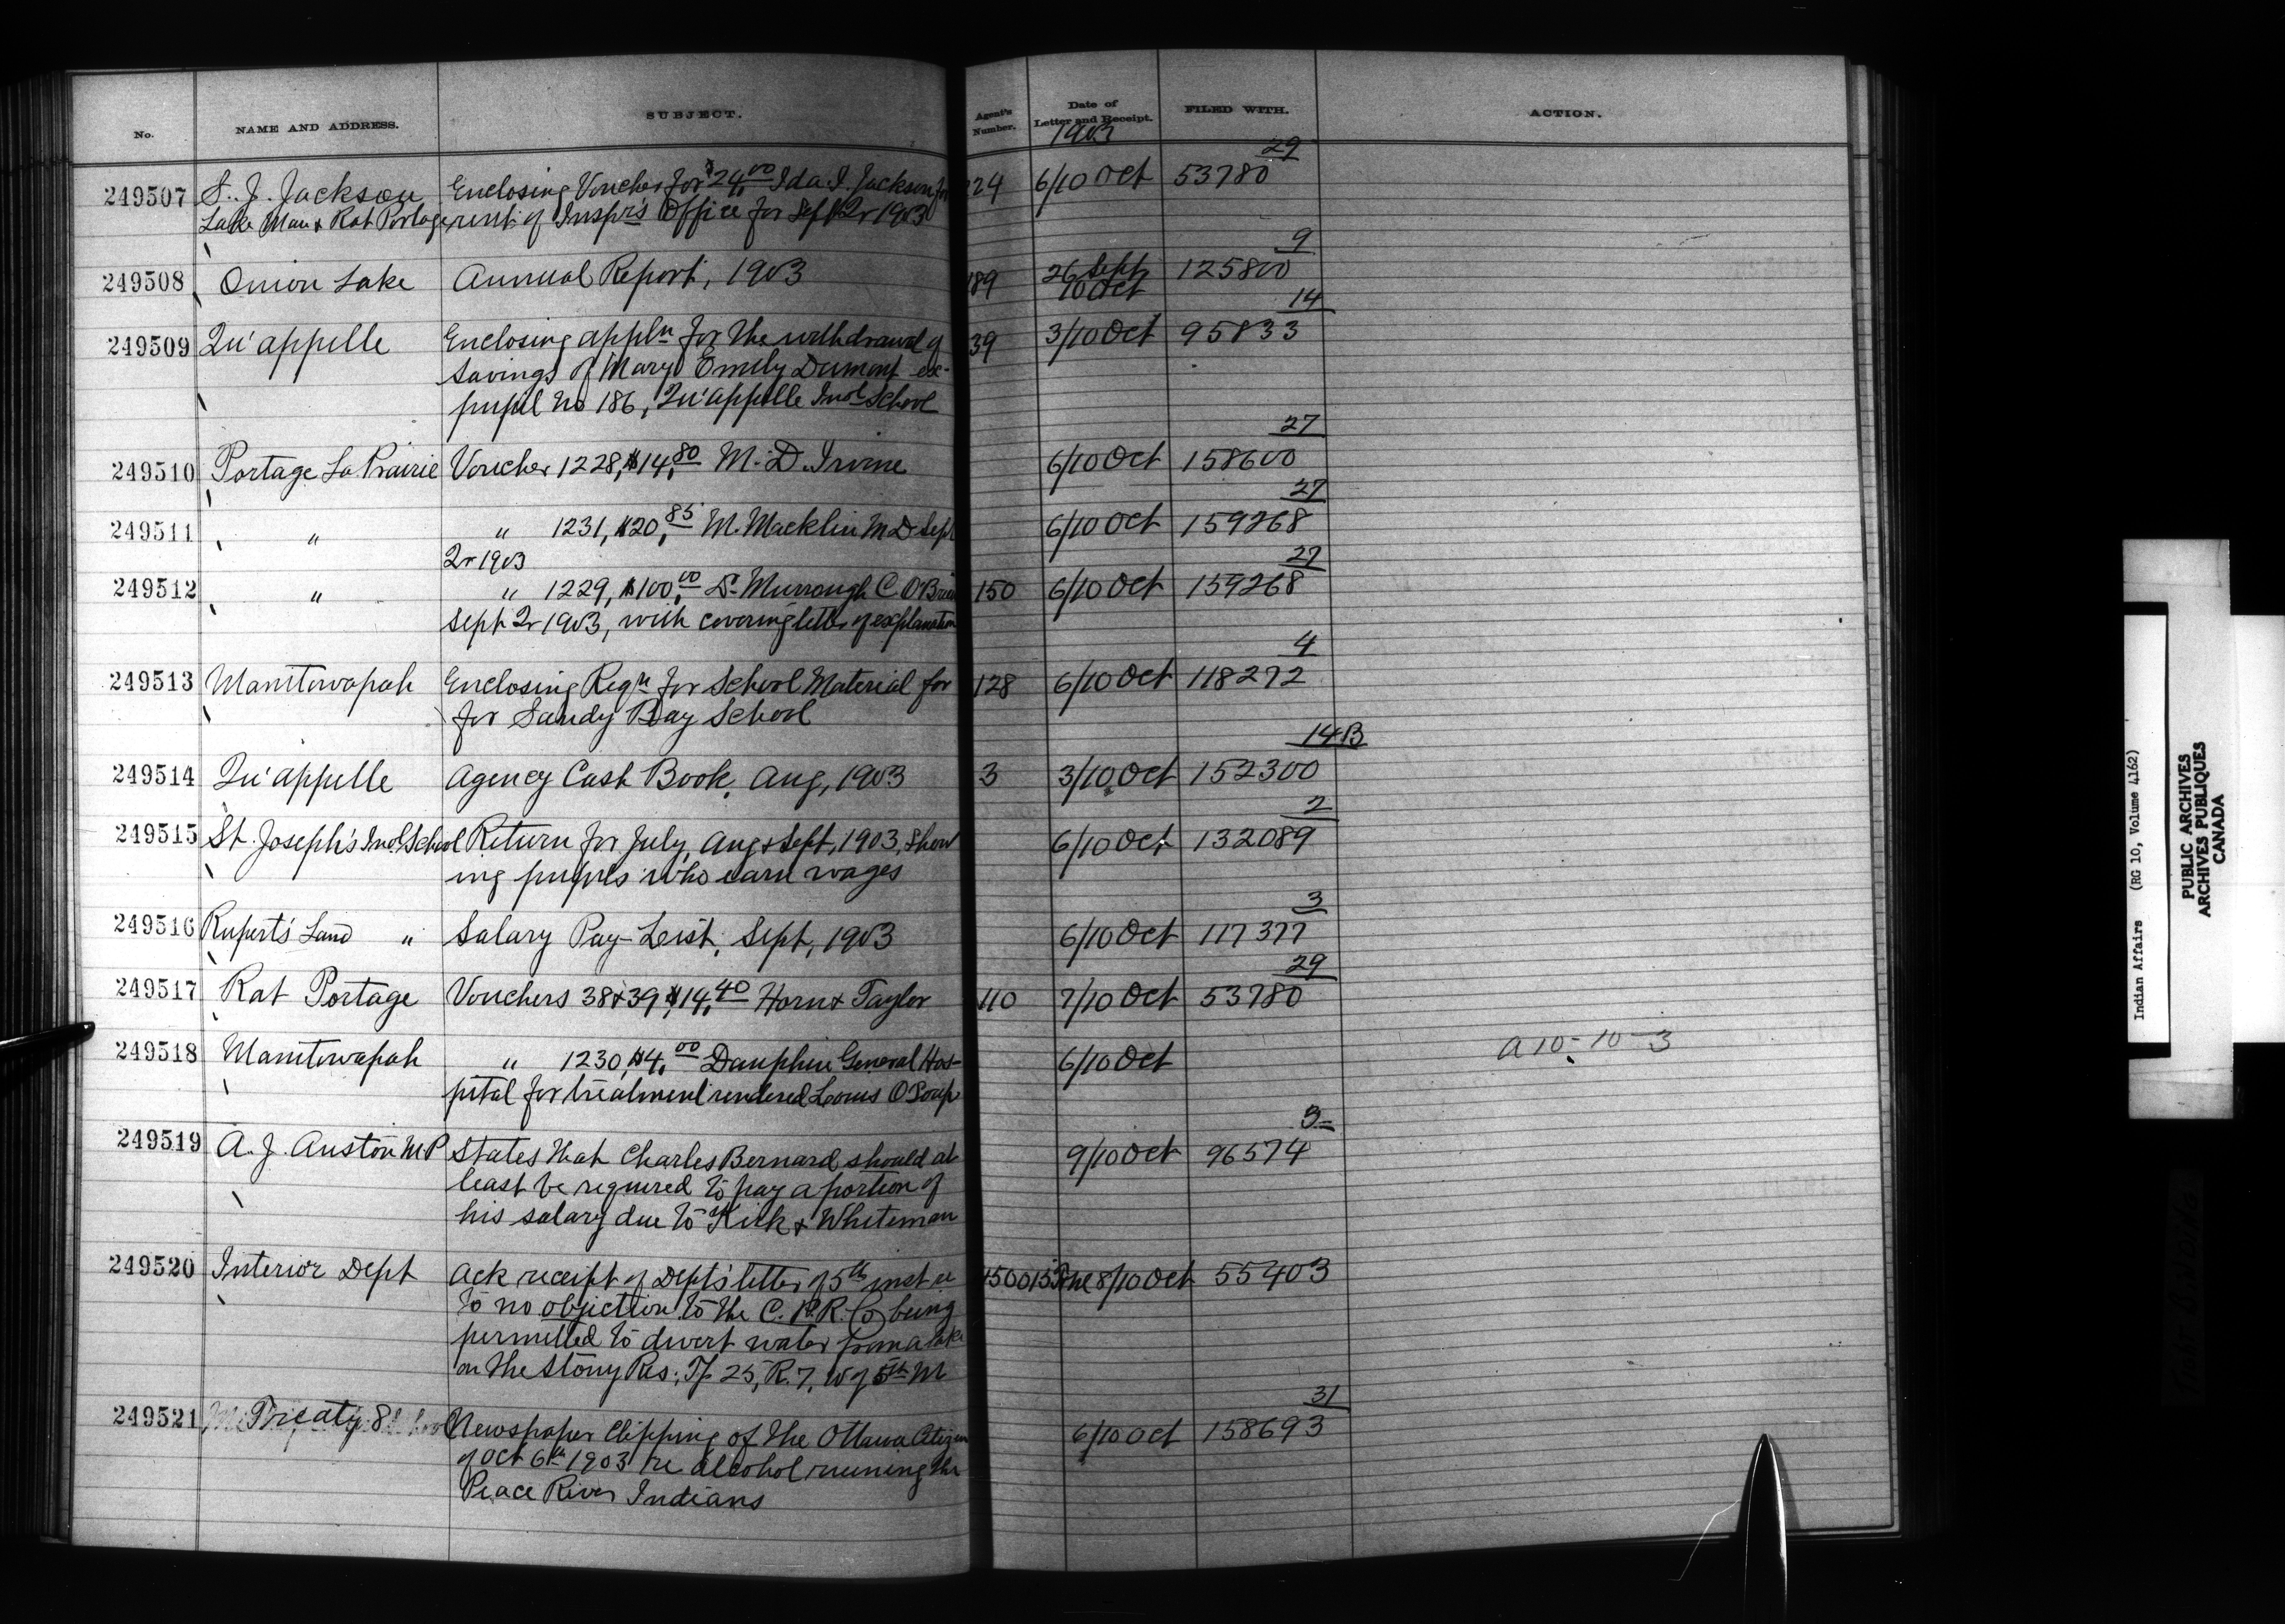 No. NAME AND ADDRESS. SUBJECT. Agent's Number. Date of Letter and Receipt. FILED WITH. ACTION.
1903
29
249507 S. J. Jackson Enclosing Voucher for $24.00 Ida I. Jackson for 224 6/10 Oct 53780
Lake Man & Rat Portage rent of Inspr's Office for Sept Qr 1903
9
249508 Onion Lake Annual Report, 1903 189 26 Sept 125800
10 Oct
14
249509 Qu'appelle Enclosing appln for the withdrawal of 39 3/10 Oct 95833
savings of Mary Emily Dumont ex-
pupil No 186, Qu'appelle Indl School
27
249510 Portage La Prairie Voucher 1228, $14.80 M. D. Irvine 6/10 Oct 158600
27
249511 " " 1231, $20.85 M. Macklin M D Sept 6/10 Oct 159268
Qr 1903
27
249512 " " 1229, $100.00 Dr Murrough C. O'Brien 150 6/10 Oct 159268
Sept Qr 1903, with covering letter of explanation
4
249513 Manitowapah Enclosing Reqn for School Material for 128 6/10 Oct 118272
for Sandy Bay School
14B
249514 Qu'appelle Agency Cash Book, Aug, 1903 3 3/10 Oct 152300
2
249515 St. Joseph's Indl School Return for July, Aug & Sept, 1903, show 6/10 Oct 132089
ing pupils who earn wages
3
249516 Rupert's Land " Salary Pay-List, Sept, 1903 6/10 Oct 117377
29
249517 Rat Portage Vouchers 38 & 39, $14.40 Horn & Taylor 110 7/10 Oct 53780
249518 Manitowapah " 1230, $4.00 Dauphin General Hos- 6/10 Oct A 10-10-3
pital for treatment rendered Louis O'Soup
3
249519 A. J. Auston MP States that Charles Bernard should at 9/10 Oct 96574
least be required to pay a portion of
his salary due to Kirk & Whiteman
249520 Interior Dept Ack receipt of Dept's letter of 5th inst re 8/10 Oct 55403
to no objection to the C. P. R. Co being
permitted to divert water from a lake
on the Stony Res; Tp 25, R. 7, W of 5th M
31
249521 Treaty 8 Newspaper Clipping of the Ottawa Citizen 6/10 Oct 158693
of Oct 6th 1903 re alcohol ruining the
Peace River Indians
Indian Affairs (RG 10, Volume 4162)
PUBLIC ARCHIVES
ARCHIVES PUBLIQUES
CANADA